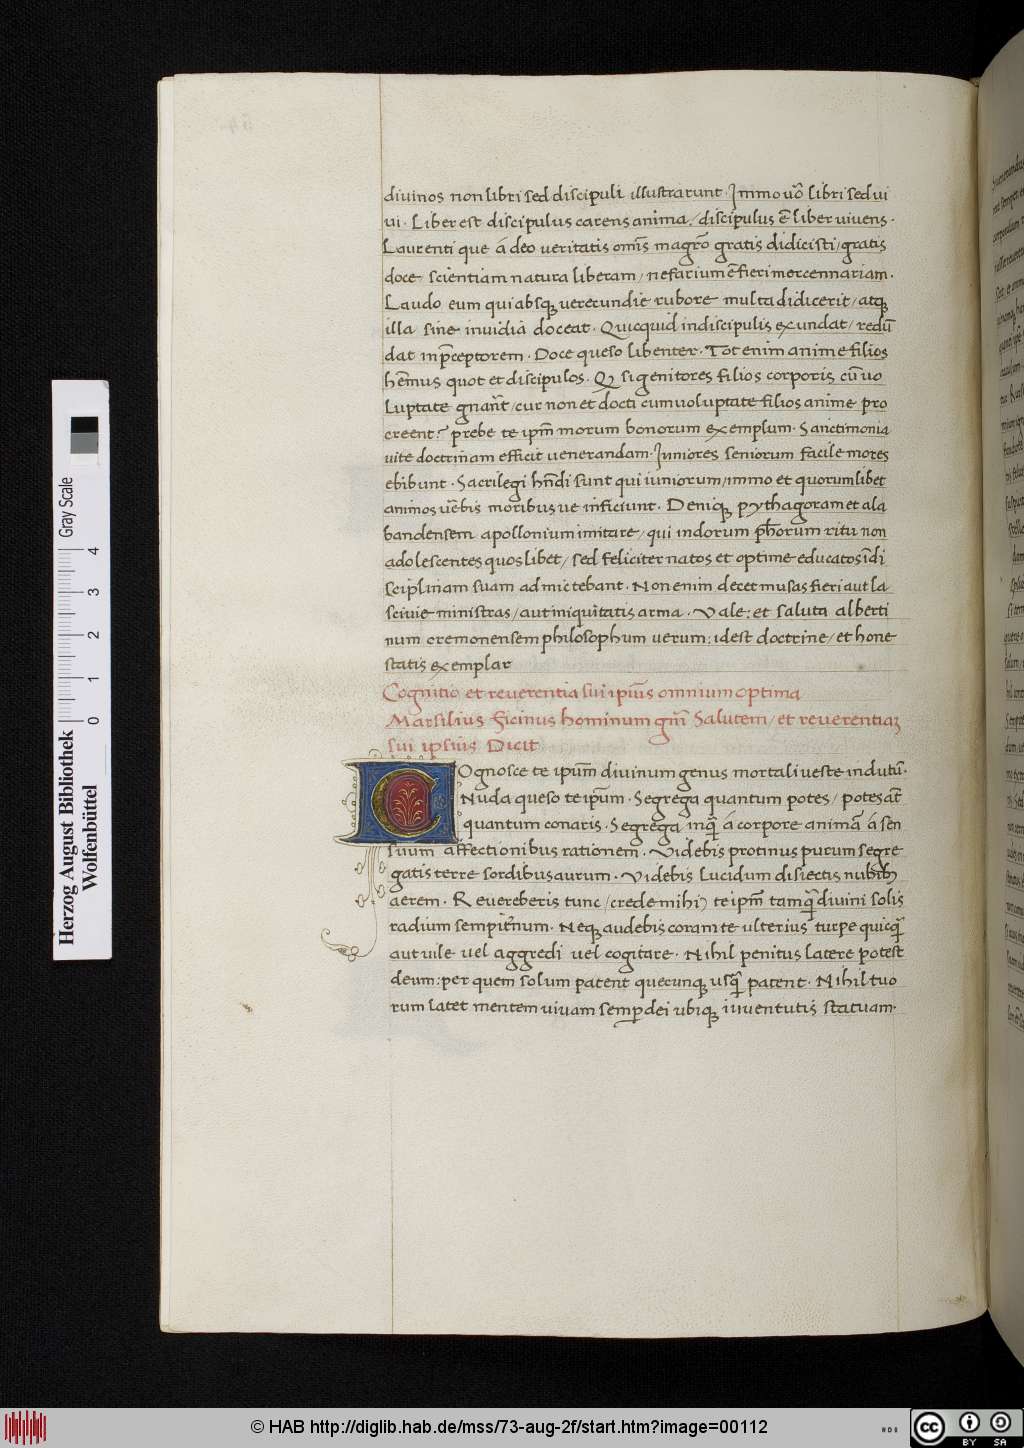 divinos non libri sed discipuli illustrarunt. Immo uō libri sed ui
ui. Liber est discipulus carens anima. discipulus ē liber uiuens.
Laurenti que á deo ueritatis om̄s magr̄o gratis didicisti/gratis
doce scientiam natura liberam/nefarium ē fieri mercennariam.
Laudo eum qui absq; uerecundie rubore multa didicerit/atq;
illa sine inuidia doceat. Quicquid in discipulis exundat/redū
dat in p̄ceptorem. Doce queso libenter. Tot enim anime filios
hēmus quot et discipulos. Q̄ si genitores filios corporis cū uo
luptate gnān̄t/cur non et docti cum uoluptate filios anime pro
creent? prebe te ip̄m morum bonorum exemplum. Sanctimonia
uite doctrinam efficit uenerandam. Iuniores seniorum facile mores
ebibunt. Sacrilegi hn̄di sunt qui iuniorum/immo et quorumlibet
animos uerbis moribusue inficiunt. Deniq; pythagoram et ala
bandensem apollonium imitare/qui indorum ph̄orum ritu non
adolescentes quoslibet/sed feliciter natos et optime educatos ī di
sciplinam suam admictebant. Non enim decet musas fieri aut la
sciuie ministras/aut iniquitatis arma. Vale: et saluta alberti
num cremonensem philosophum uerum: idest doctrine/et hone
statis exemplar
Cognitio et reuerentia sui ipīus omnium optima
Marsilius ficinus hominum gn̄i Salutem/et reuerentiam
sui ipsius Dicit
Cognosce te ipum̄ diuinum genus mortali ueste indutū.
Nuda queso te ip̄um. Segrega quantum potes/potes at̄
quantum conaris. Segrega inq̄ á corpore animā á sen
suum affectionibus rationem. Videbis protinus purum segre
gatis terre sordibus aurum. Videbis lucidum disiectis nubib;
aerem. Reuereberis tunc (crede mihi) te ip̄m tamq̄ diuini solis
radium sempiternum. Neq; audebis coram te ulterius turpe quicq̄
aut uile uel aggredi uel cogitare. Nihil penitus latere potest
deum: per quem solum patent quecunq; usq̄ patent. Nihil tuo
rum latet mentem uiuam semp dei ubiq; iuuentutis statuam.
Herzog August Bibliothek
Wolfenbüttel
Gray Scale
0 1 2 3 4
© HAB http://diglib.hab.de/mss/73-aug-2f/start.htm?image=00112
cc BY SA